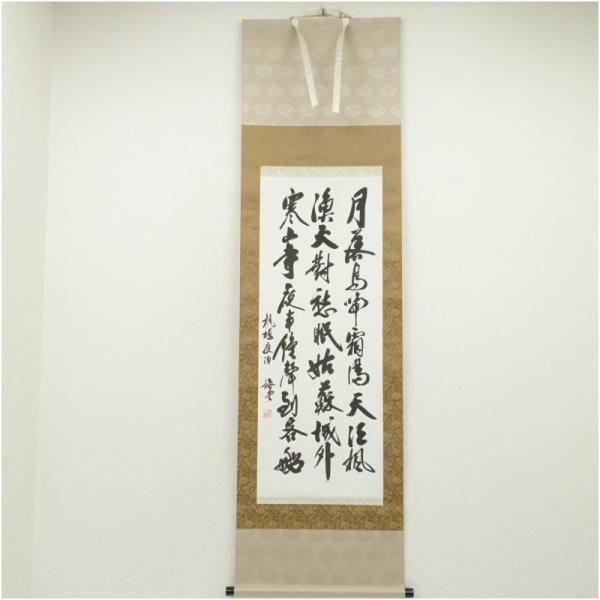 月落烏啼霜滿天江楓
漁火對愁眠姑蘇城外
寒山寺夜半鐘聲到客船
楓橋夜泊